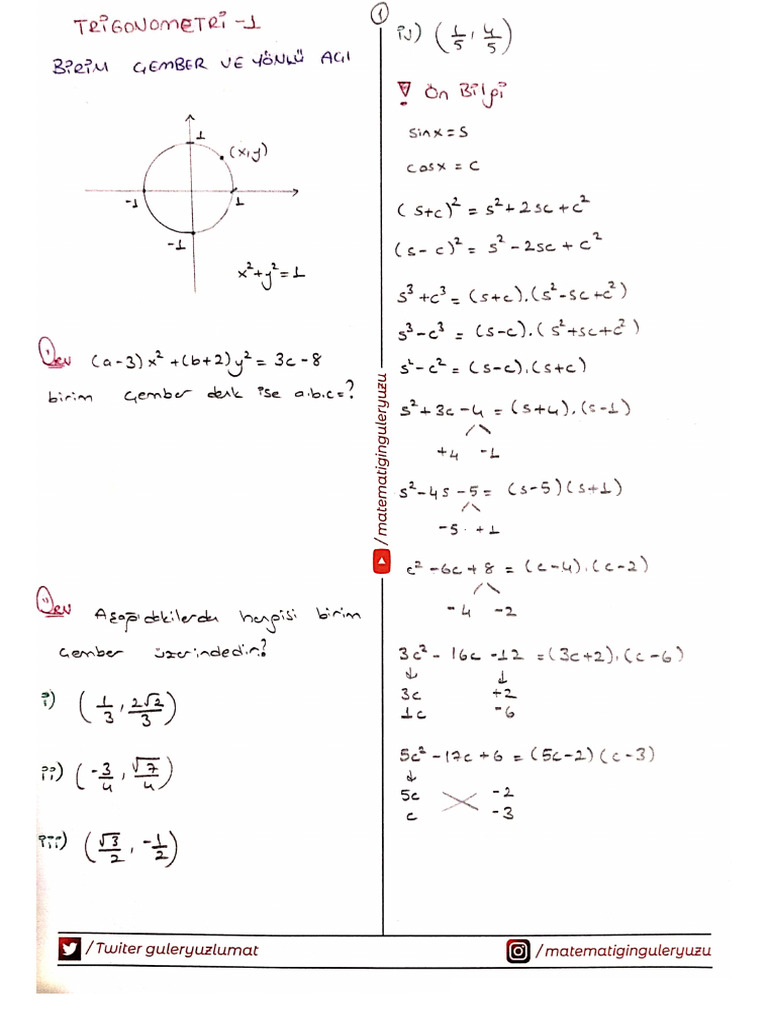 TRİGONOMETRİ-1
BİRİM ÇEMBER VE YÖNLÜ AÇI
1
(x,y)
-1
1
-1
x²+y²=1
Örnek
(a-3)x²+(b+2)y²=3c-8
birim çember denk ise a.b.c=?
Örnek
Aşağıdakilerden hangisi birim
çember üzerindedir?
i) (1/3, 2√2/3)
ii) (-3/4, √7/4)
iii) (√3/2, -1/2)
1
iv) (1/5, 4/5)
! Ön Bilgi
sinx=s
cosx=c
(s+c)²=s²+2sc+c²
(s-c)²=s²-2sc+c²
s³+c³=(s+c).(s²-sc+c²)
s³-c³=(s-c).(s²+sc+c²)
s²-c²=(s-c).(s+c)
s²+3c-4=(s+4).(s-1)
+4 -1
s²-4s-5=(s-5)(s+1)
-5 +1
c²-6c+8=(c-4).(c-2)
-4 -2
3c²-16c-12=(3c+2).(c-6)
3c +2
1c -6
5c²-17c+6=(5c-2)(c-3)
5c -2
c -3
/matematiginguleryuzu
/Twiter guleryuzlumat
/matematiginguleryuzu